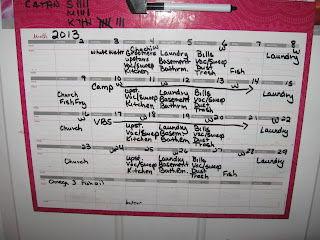 CATHY S IIII
M IIII
KTHY
Month 2013
2 3 4 5 6 7 8
white water
Groomers
upstairs
Vac/Sweep
Kitchen
Laundry
Basement
Bathrm.
w
Bills
Vac/Sweep
Dust
Trash
Fish
w
Laundry
9 10 11 12 13 14 15
Church
Fish Fry
Camp
w
upst.
Vac/Sweep
Kitchen
Laundry
Basement
Bathrm
Bills
Vac/Sweep
Dust
Trash
w
Laundry
16 17 18 19 20 21 22
Church
VBS
w
upst.
Vac/Sweep
Kitchen
Laundry
Basement
Bathrm.
w
Bills
Vac/Sweep
Dust
Trash
w
Laundry
23 24 25 26 27 28 29
Church
w
upst.
Vac/Sweep
Kitchen
w
Laundry
Basement
Bathrm.
Bills
Vac/Sweep
Dust
Trash
w
Fish
Laundry
Omega 3 Fish oil
butter